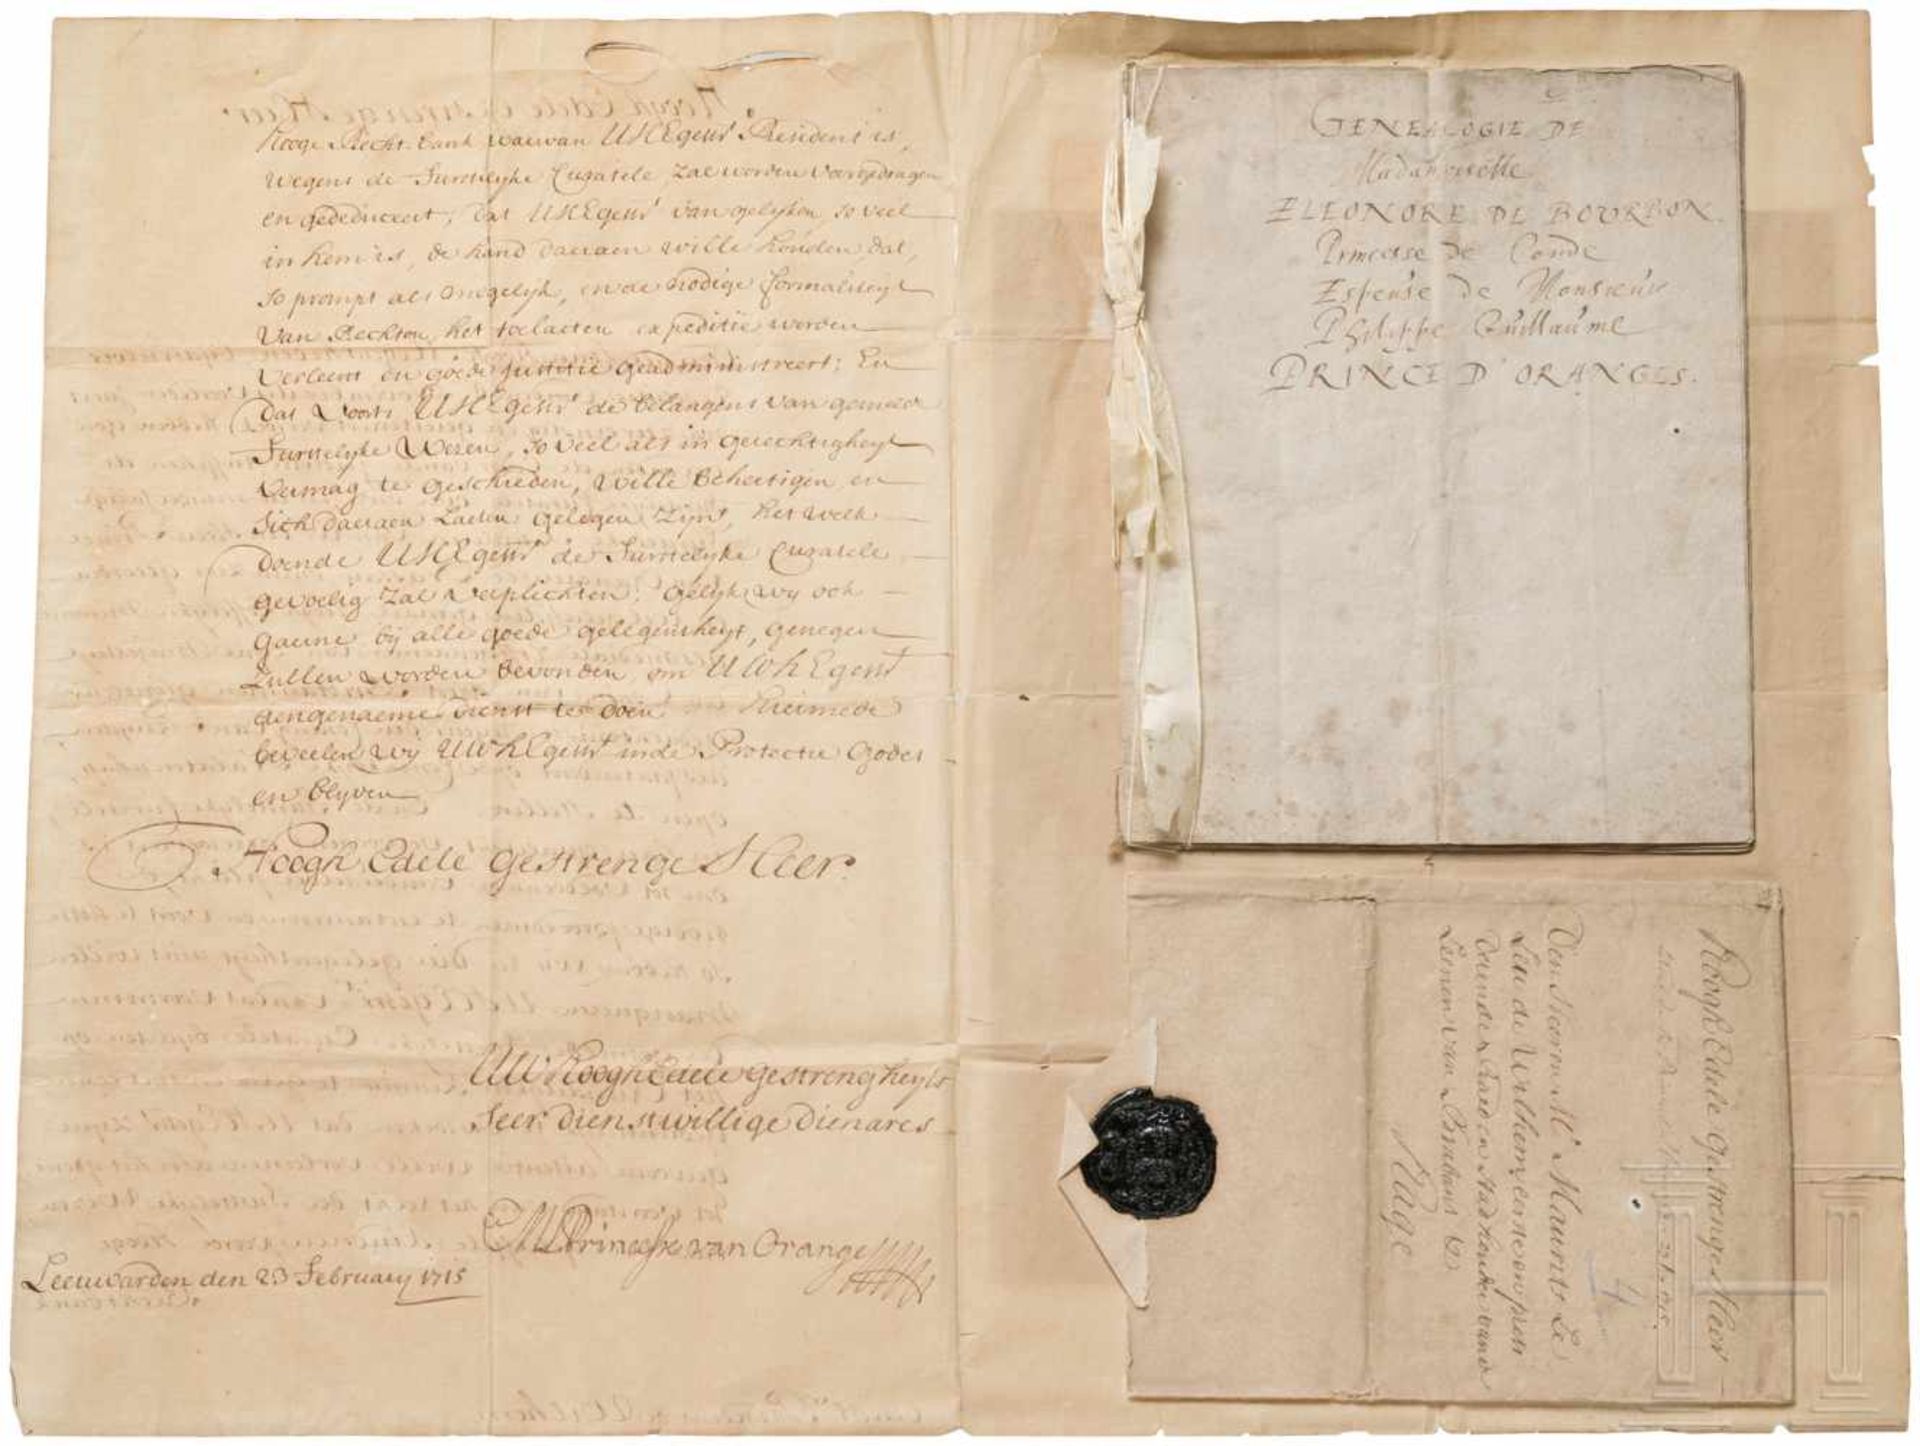 Hooge Recht-bank waervan UHEgenst President is,
wegens de Furstelyke Curatele, zal worden voorgedragen
en gededuceert, dat UHEgenst van gelyken, so veel
in hem is, de hand daeraen wille houden, dat,
so prompt als mogelyk, en de nodige formaliteyt
van Rechten het toelaeten expeditie worden
verleent en goede justitie geadministreert: En
dat voorts UHEgenst de belangens van gemelte
Furstelyke Wesen, so veel als in gerechtigheyt
vermag te geschieden, wille behertigen, en
sich daeraen laeten gelegen zyn, het welk
doende UHEgenst de Furstelyke Curatele
gevoelig zal verplichten; gelyk wy ook
gaerne by alle goede gelegentheyt, genegen
zullen worden bevonden, om UWhEgenst
aengenaeme dienst te doen Hiermede
beveelen wy UWhEgenst in de Protectie Godes
en blyven
Hoogh Edele gestrenge Heer.
UW HooghEdele gestrengheyts
Seer dienstwillige dienares
ML Princesse van Orange
Leeuwarden den 23 February 1715
GENEALOGIE DE
Madamoiselle
ELEONORE DE BOURBON
Princesse de Conde
Espeuse de Monsieur
Philippe Guillaume
PRINCE D'ORANGES.
Hoogh Edele Gestrenge Heer
Den Heeren Mr Maurits Le
Leu de Wilhem, eerste en presi
derende Raed en Stadhouder van de
Leenen van Brabant &c
Hage
4